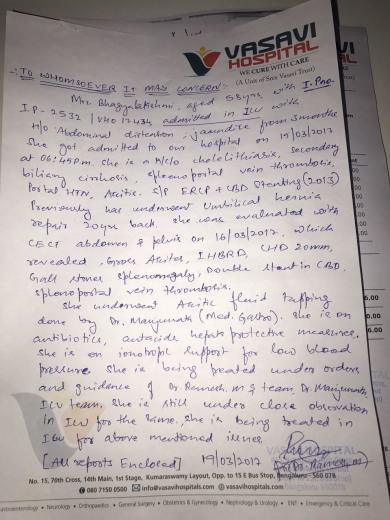 VASAVI
HOSPITAL
WE CURE WITH CARE
(A Unit of Sree Vasavi Trust)
-: TO WHOMSOEVER IT MAY CONCERN :-
Mrs. Bhagyalakshmi, aged 58yrs, with I.P no-
I.P - 2532 / VH012434 admitted in ICU with
H/o Abdominal distension, jaundice from 3months
She got admitted to our hospital on 19/03/2017
at 06:45pm. She is a K/c/o cholelithiasis, secondary
biliary cirrhosis, splenoportal vein thrombosis,
Portal HTN, Ascitis. S/P ERCP + CBD Stenting (2013)
Previously has underwent Umbilical hernia
repair 20yrs back. she was evaluated with
CECT abdomen & pelvis on 16/03/2017, which
revealed, Gross Ascites, IHBRD, CHD 20mm,
Gall stones splenomegaly, Double stent in CBD,
splenoportal vein thrombosis.
She underwent Ascitic fluid tapping
done by Dr. Manjunath (Med. Gastro). she is on
antibiotics, antacids hepato protective measures,
she is on ionotropic support for low blood
pressure she is being treated under orders
and guidence of Dr. Ramesh. M & team, Dr. Manjunath
ICU team, she is still under close observation
in ICU for the same, she is being treated in
ICU for above mentioned illness
[All reports Enclosed] 19/03/2017
VASAVI HOSPITAL
No. 15, 70th Cross, 14th Main, 1st Stage, Kumaraswamy Layout, Opp. to 15 E Bus Stop, Bengaluru - 560 078
080 7150 0500 info@vasavihospitals.com vasavihospitals.com
Gastroenterology • Neurology • Orthopaedics • General Surgery • Obstetrics & Gynecology • Nephrology & Urology • ENT • Emergency & Critical Care